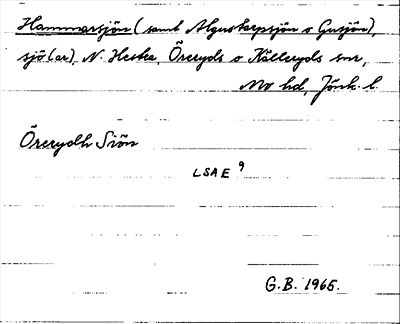 Hammarsjön (samt Algustorpsjön o Gusjön),
sjö(ar), N. Hestra, Öreryds o Källeryds snr,
Mo hd, Jönk. l.
Örerydh Siön
LSAE 9
G.B. 1965.